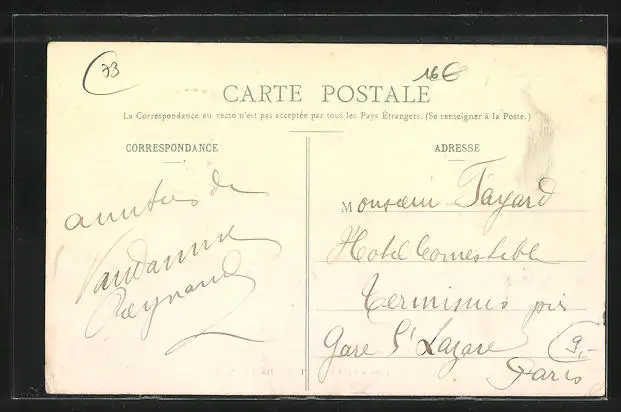 73
16€
CARTE POSTALE
La Correspondance au recto n'est pas acceptée par tous les Pays Étrangers. (Se renseigner à la Poste.)
CORRESPONDANCE
ADRESSE
amitiés de
Reynaud
Monsieur Fayard
Hotel Comestible
Terminus près
Gare St Lazare
Paris
9,-